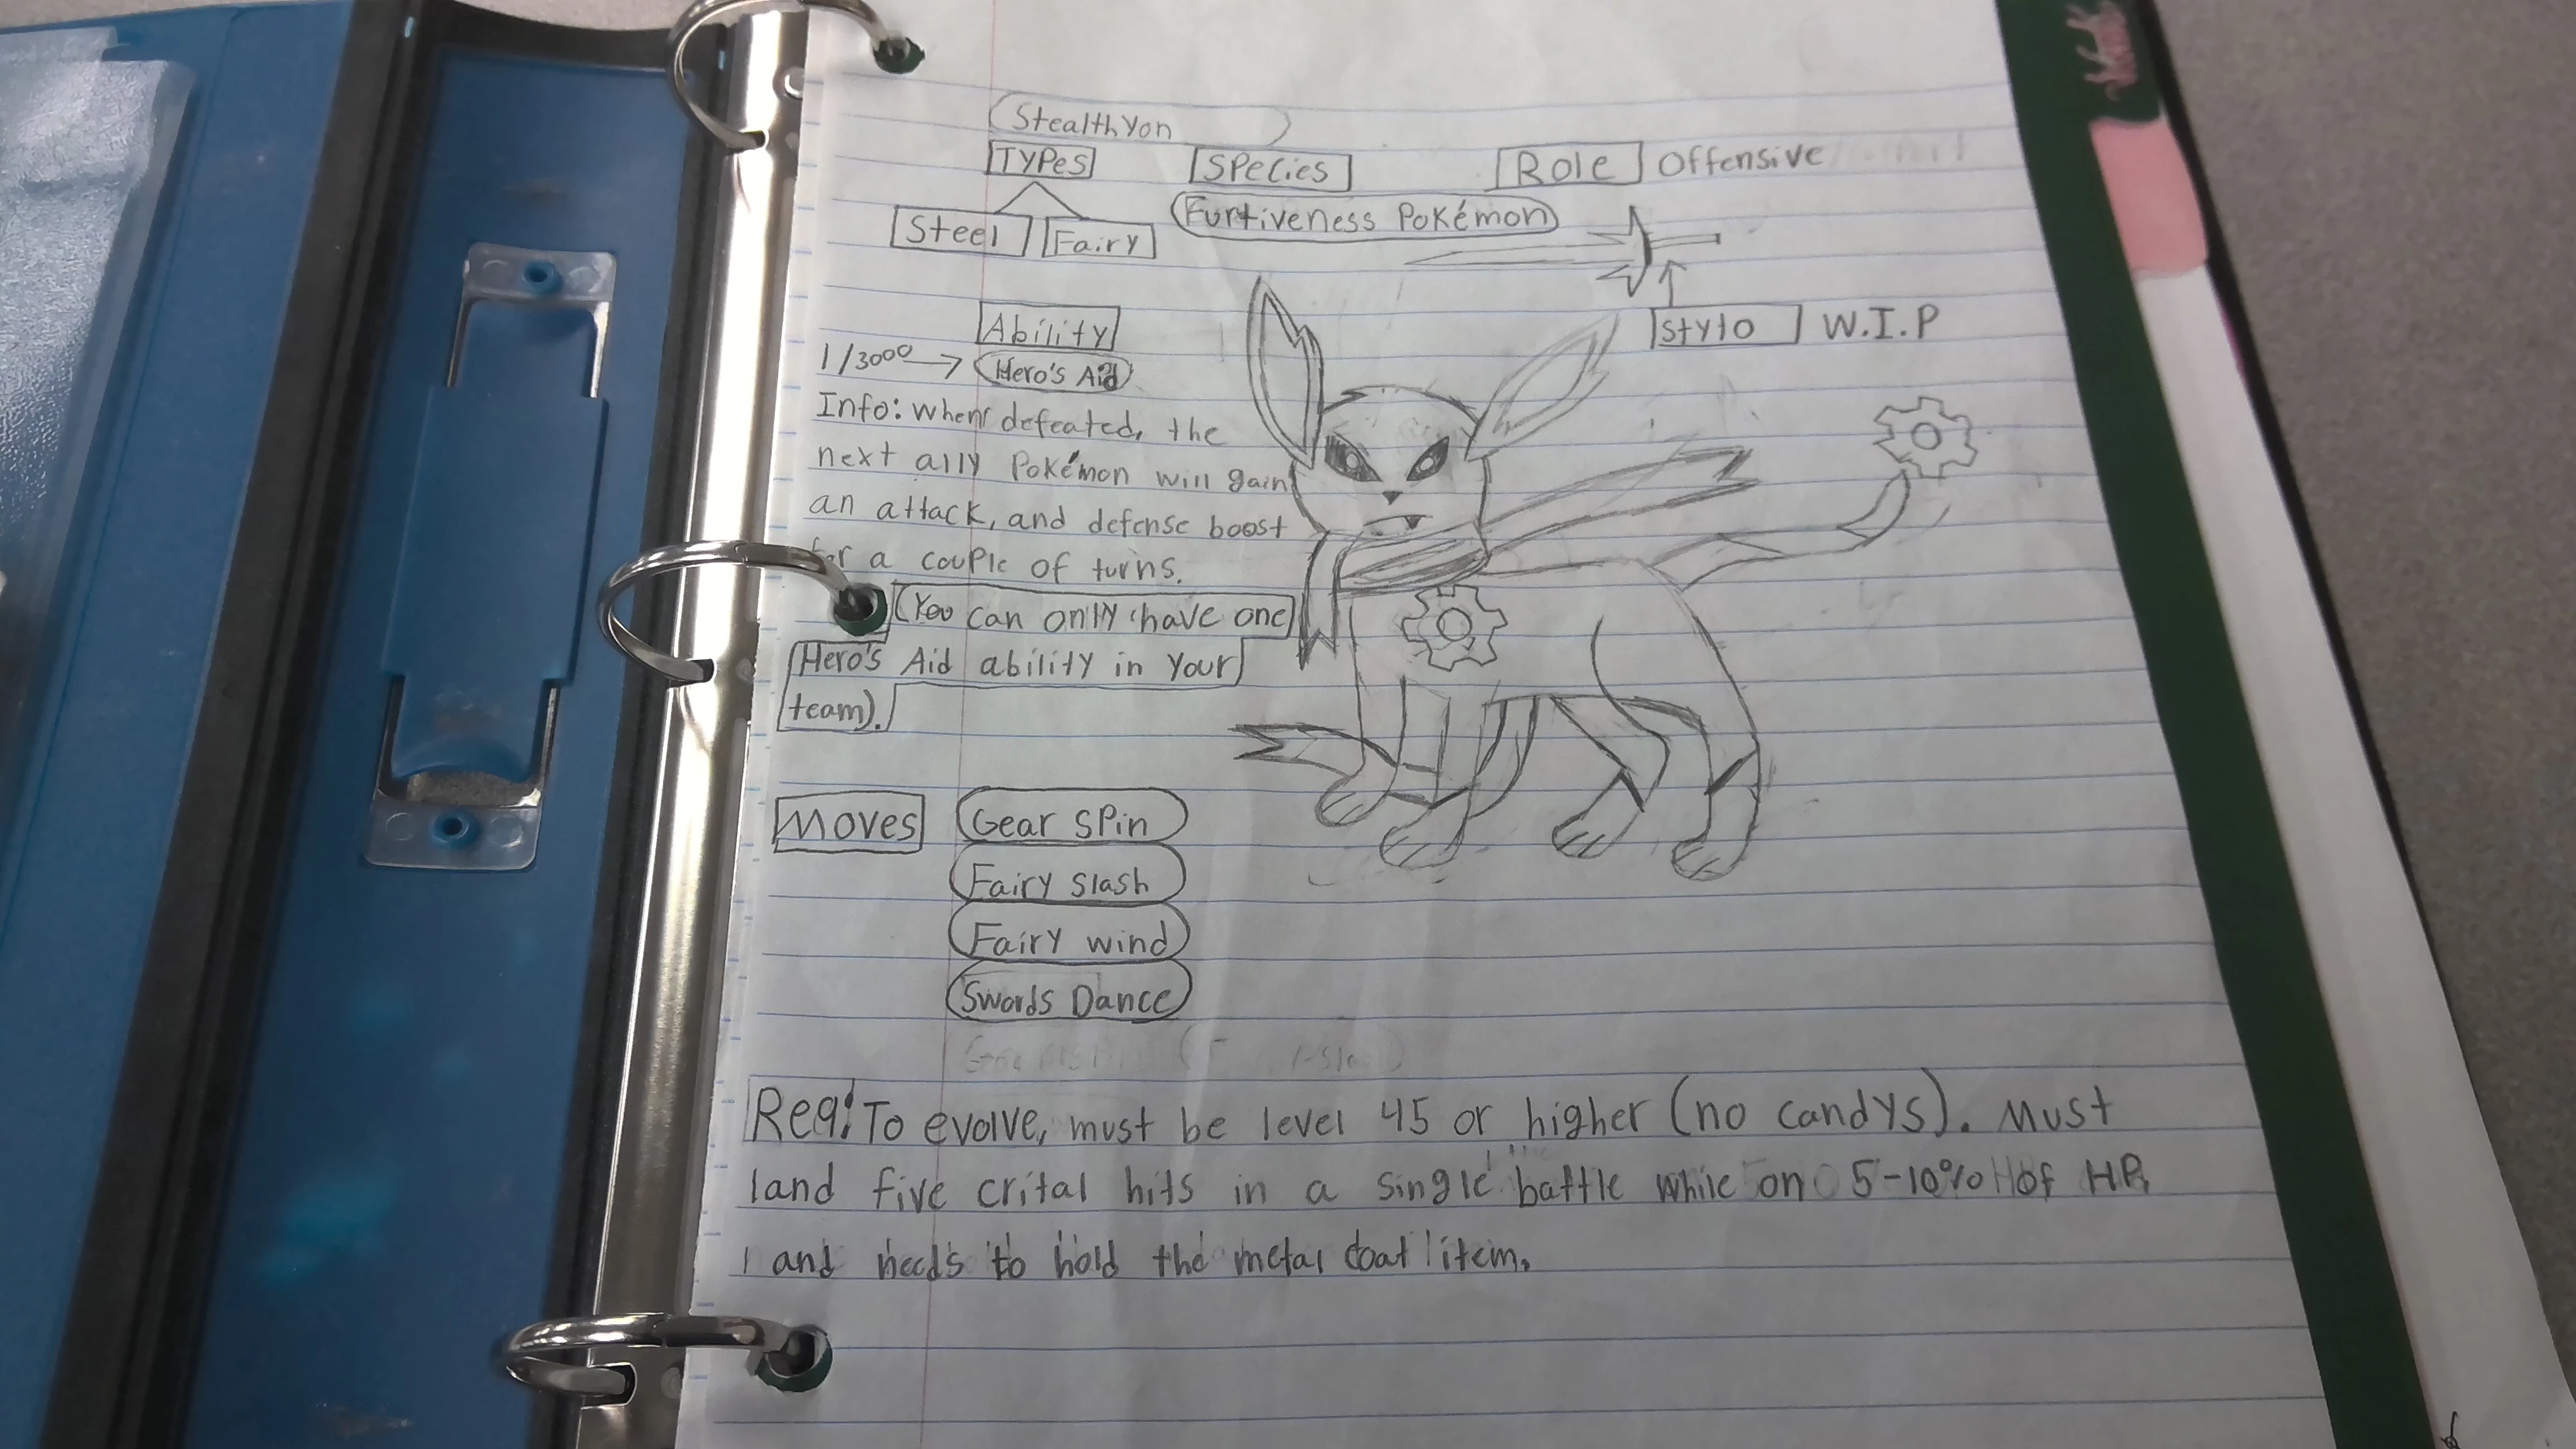 Stealthyon
Types
Species
Role Offensive
Steel Fairy
Furtiveness Pokémon
Stylo W.I.P
Ability
1/3000 → Hero's Aid
Info: when defeated, the
next ally Pokémon will gain
an attack, and defense boost
for a couple of turns.
(You can only have one
Hero's Aid ability in your
team).
Moves Gear Spin
Fairy slash
Fairy wind
Swords Dance
Req: To evolve, must be level 45 or higher (no candys). Must
land five crital hits in a single battle while on 5-10% of HP,
and needs to hold the metal coat item.